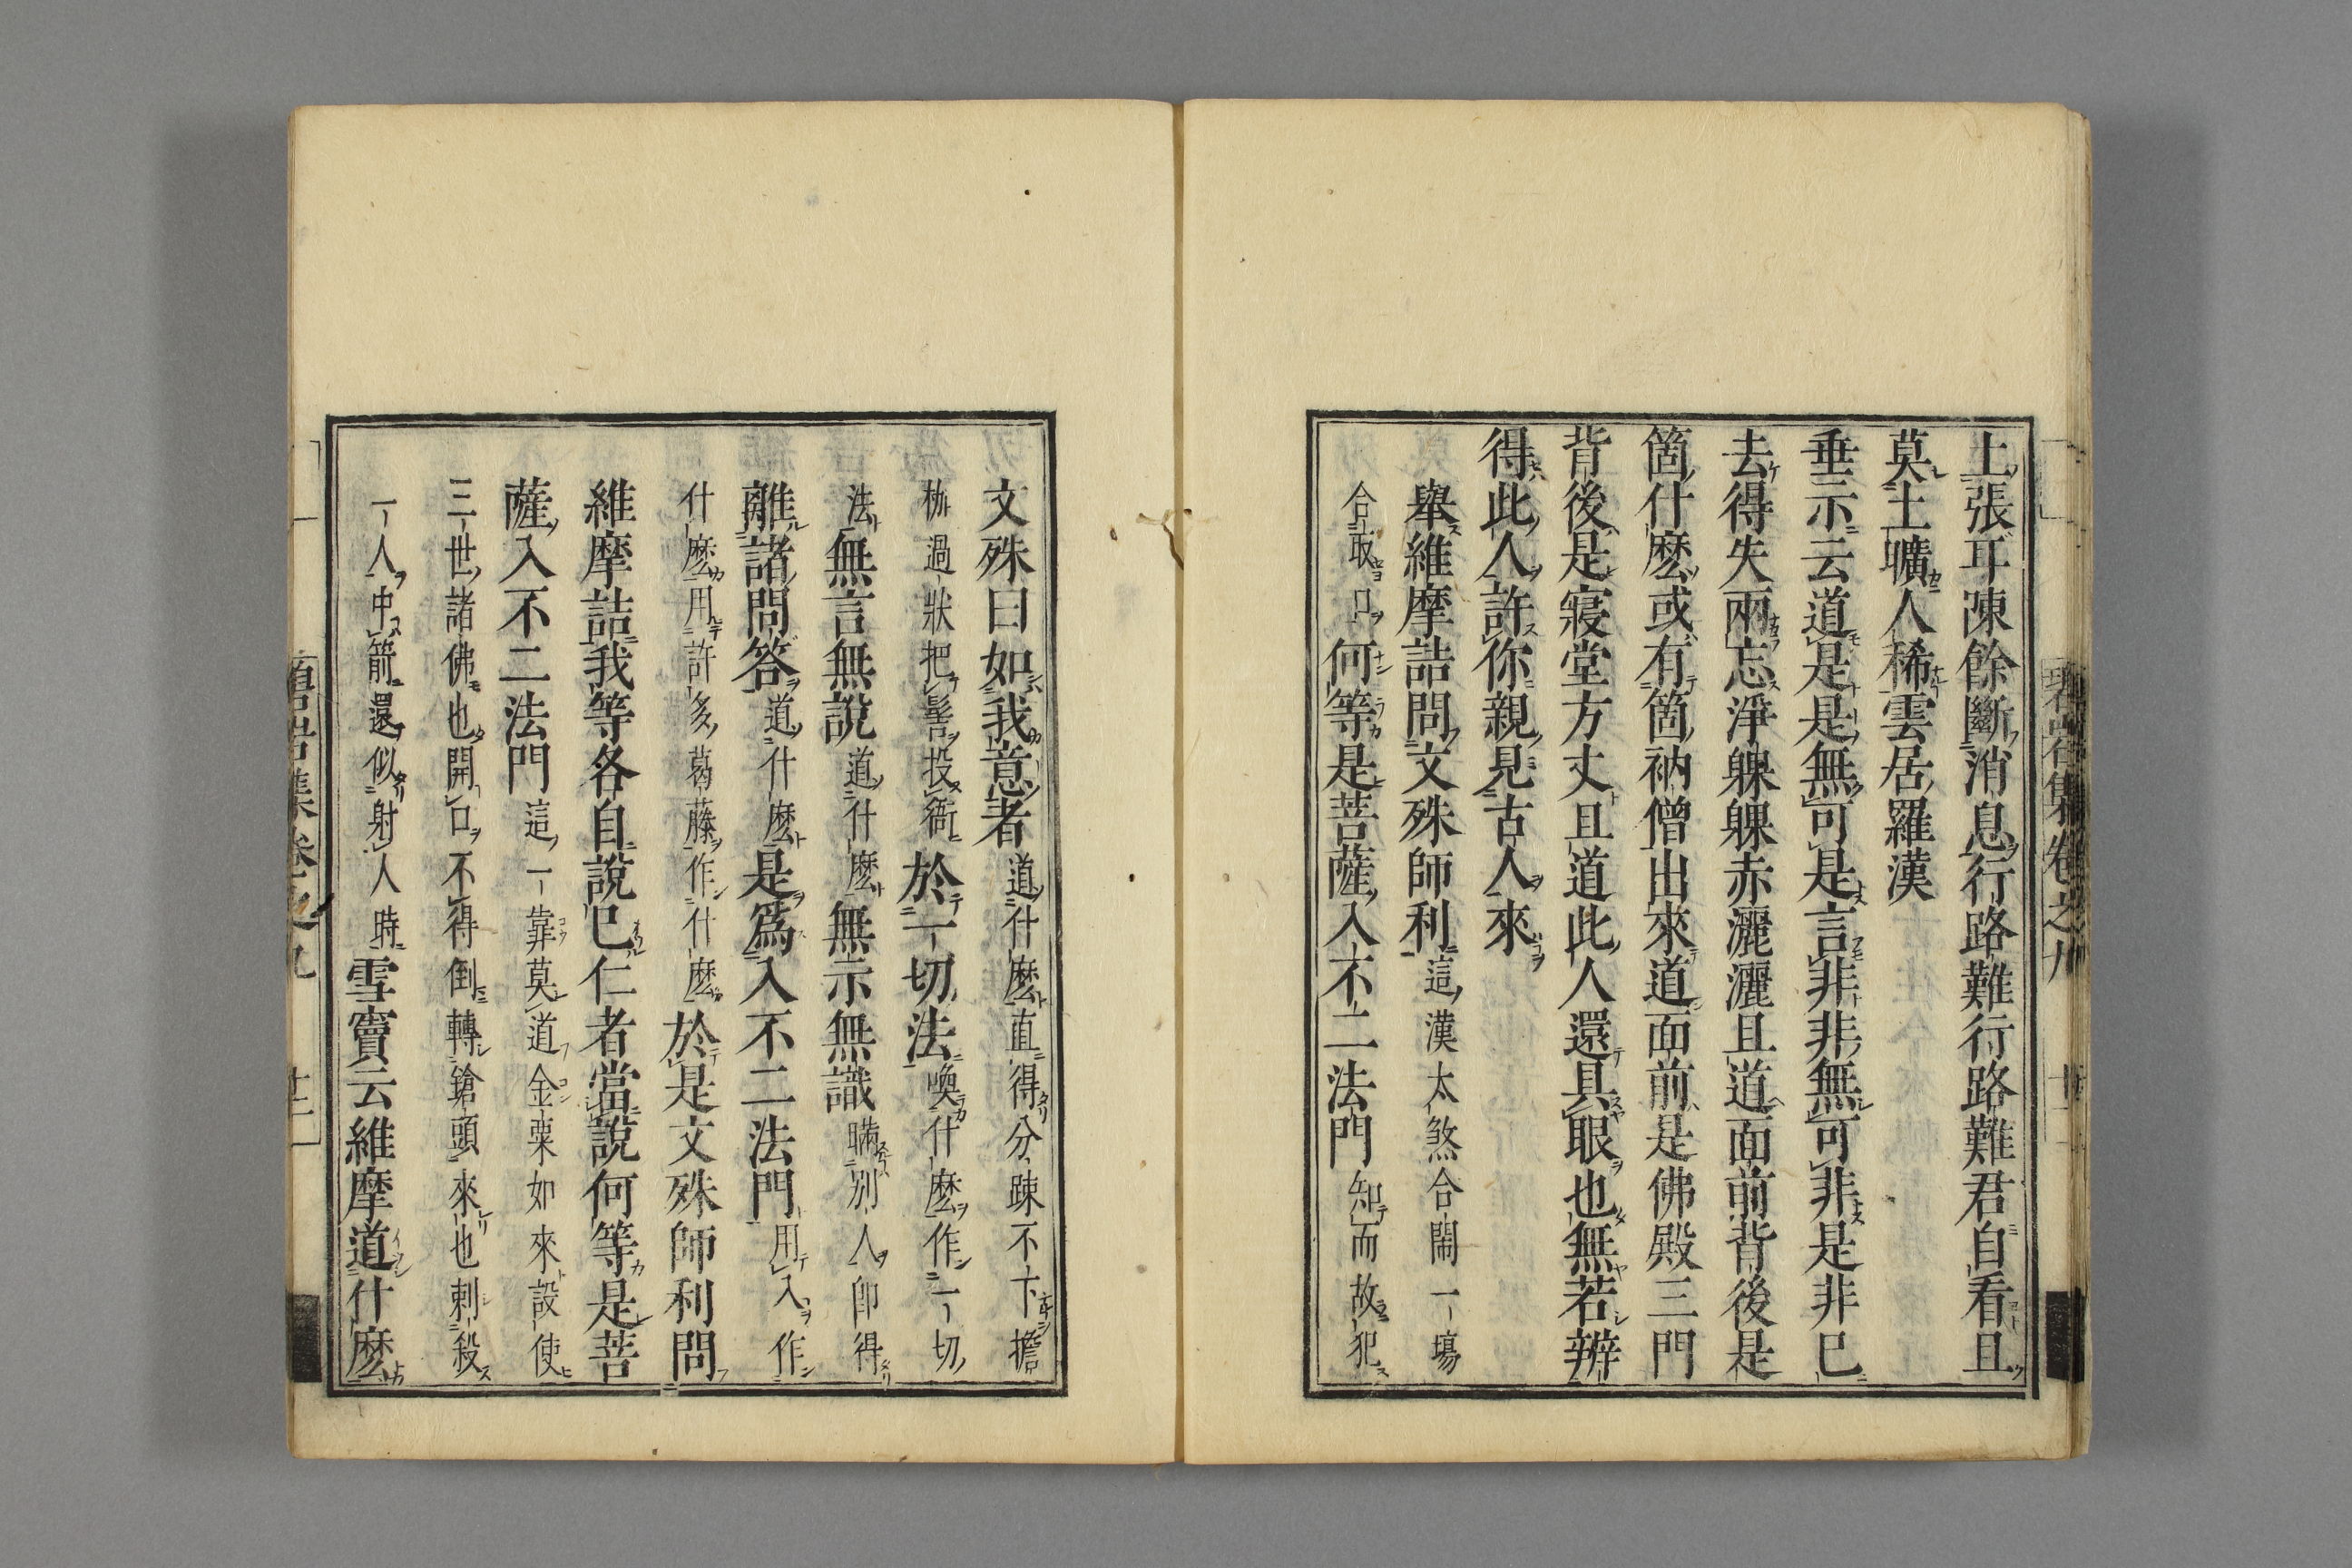 上張耳凍餘斷消息行路難行路難君自看且
莫土曠人稀雲居羅漢
垂示云道是是無可是言非非無可非是非已
去得失兩忘淨躶躶赤灑灑且道面前背後是
箇什麼或有箇衲僧出來道面前是佛殿三門
背後是寢堂方丈且道此人還具眼也無若辨
得此人許你親見古人來
舉維摩詰問文殊師利這漢太煞合鬧一場
合取口何等是菩薩入不二法門知而故犯
文殊曰如我意者道什麼直得分疎不下擔
枷過狀把髻投衙於一切法喚什麼作一切
法無言無說道什麼無示無識瞞別人即得
離諸問答道什麼是爲入不二法門用入作
什麼用許多葛藤作什麼於是文殊師利問
維摩詰我等各自說已仁者當說何等是菩
薩入不二法門這一靠莫道金粟如來設使
三世諸佛也開口不得倒轉鎗頭來也刺殺
一人中箭還似射人時雪竇云維摩道什麼
碧岩集卷之九